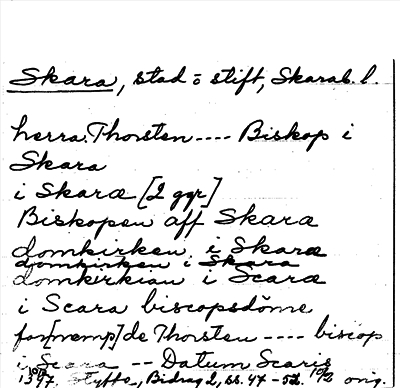 Skara, stad o stift, Skarab. l.
herra Thorsten ---- Biskop i
Skara
i Skaræ [2 ggr]
Biskopen aff Skaræ
domkirken i Skaræ
domkirkian i Scaræ
i Scara biscopsdöme
for[nemp]de Thorsten ---- biscop
i Scara -- Datum Scaris
1397. Styffe, Bidrag 2, ss. 47-52. orig.